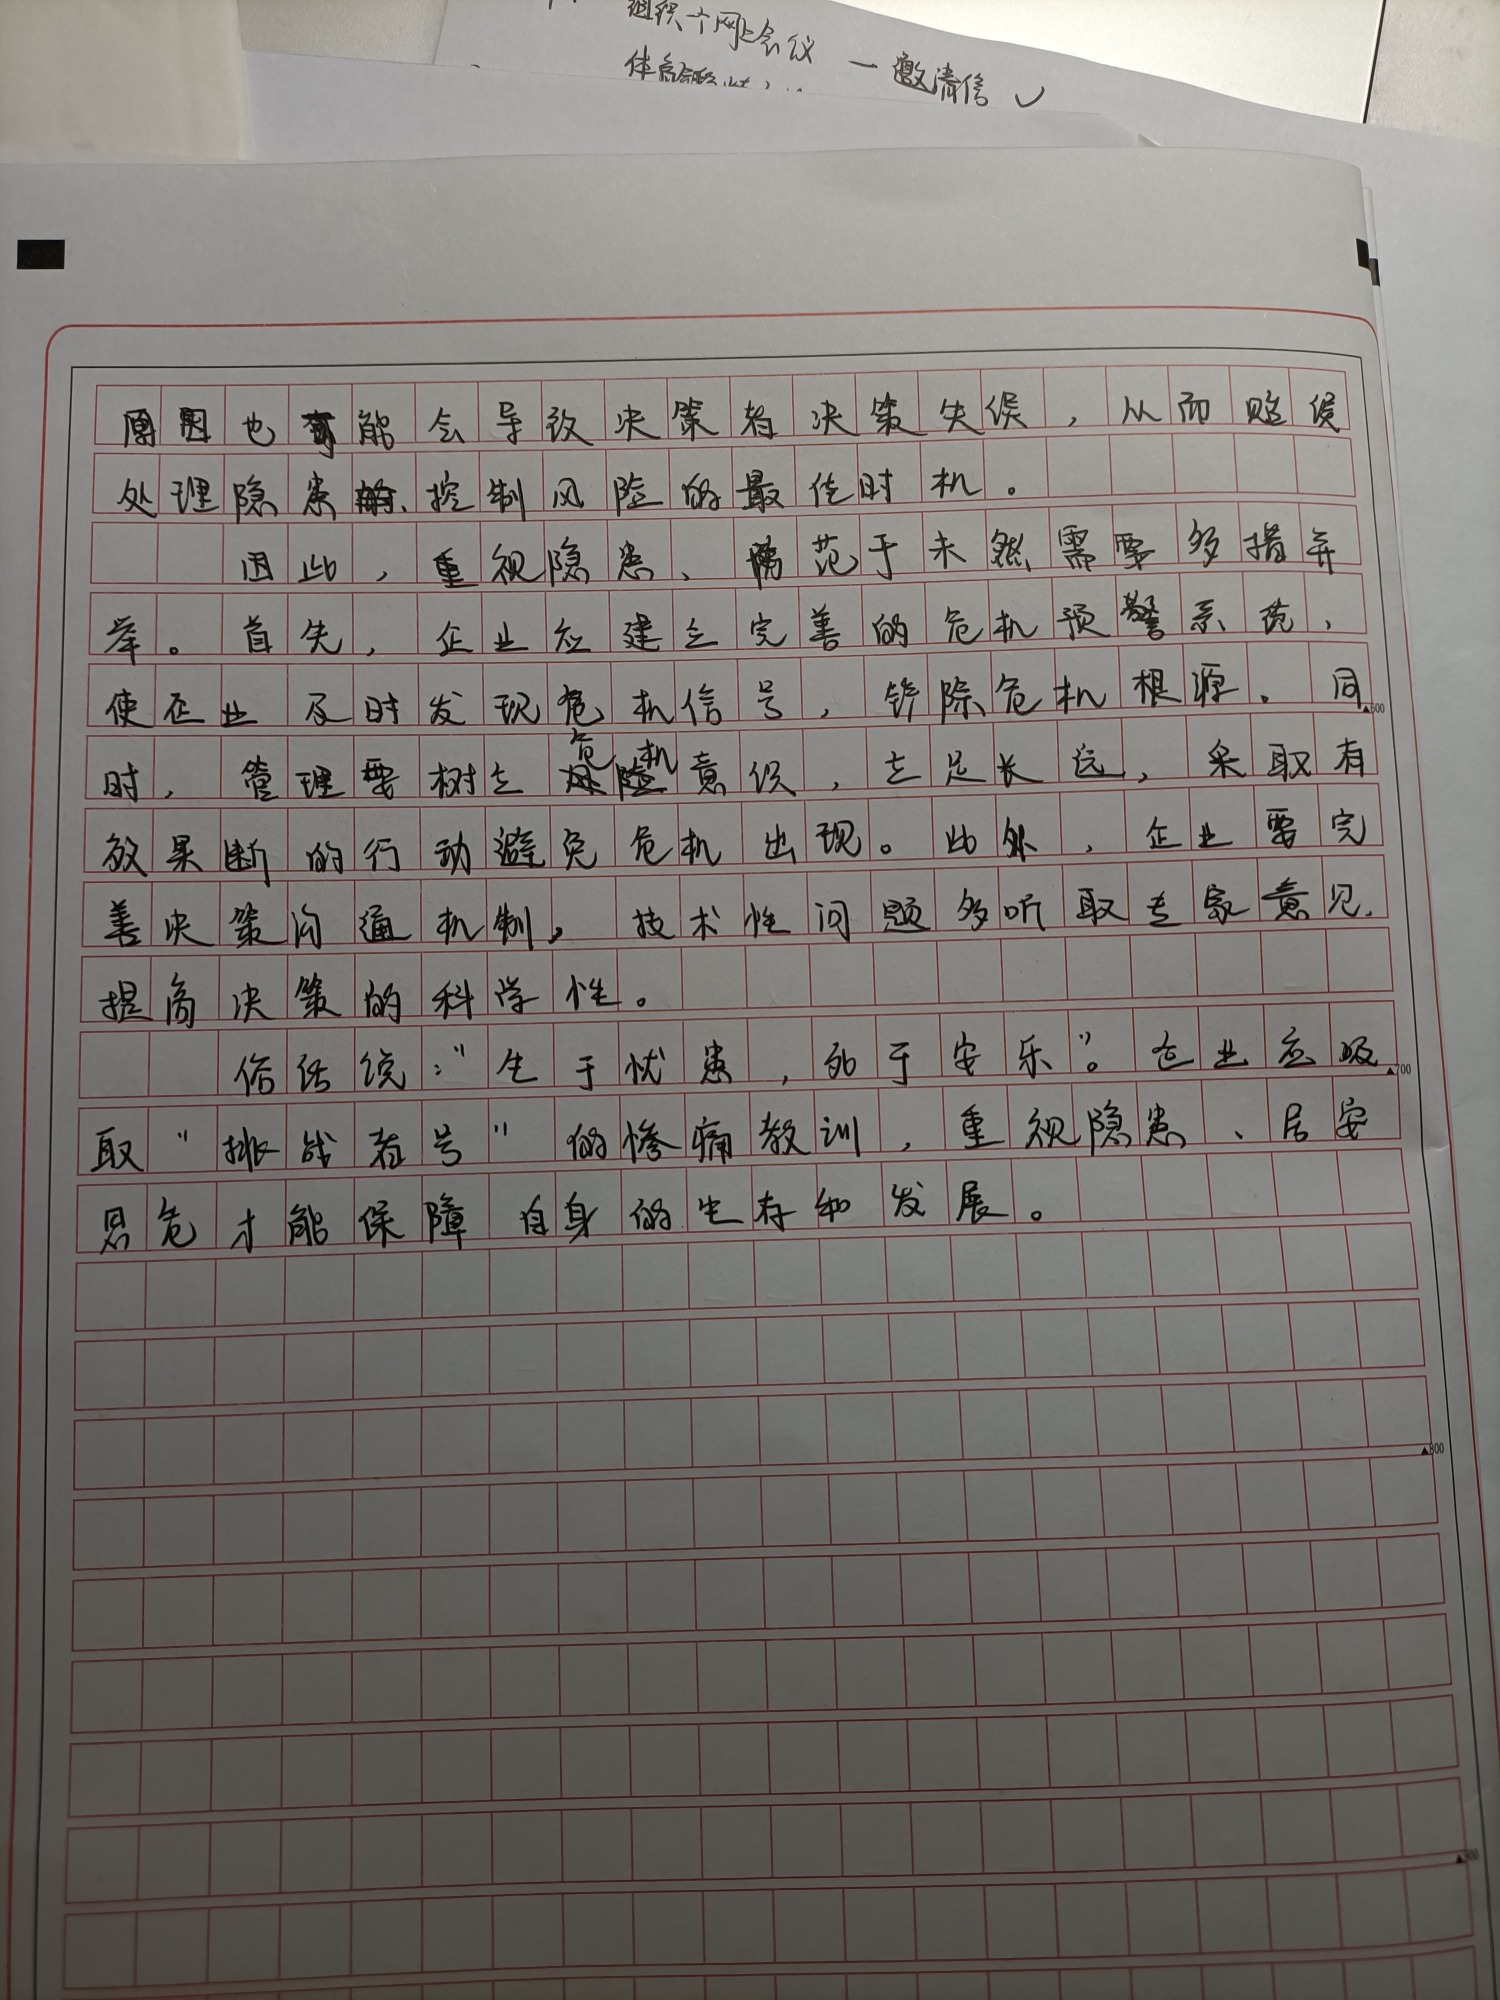 组织个网上会议 一 邀请信 ✓
原因也可能会导致决策者决策失误，从而贻误
处理隐患、控制风险的最佳时机。
因此，重视隐患、防范于未然需要多措并
举。首先，企业应建立完善的危机预警系统，
使企业及时发现危机信号，铲除危机根源。同
▲600
时，管理要树立危机意识，立足长远，采取有
效果断的行动避免危机出现。此外，企业要完
善决策沟通机制，技术性问题多听取专家意见，
提高决策的科学性。
俗话说：“生于忧患，死于安乐”。企业应吸
▲700
取“挑战者号”的惨痛教训，重视隐患、居安
思危才能保障自身的生存和发展。
▲800
▲900